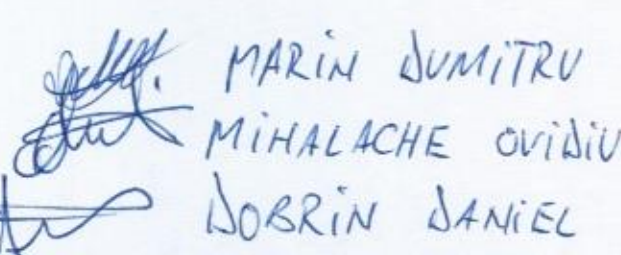 MARIN DUMITRU
MIHALACHE OVIDIU
DOBRIN DANIEL